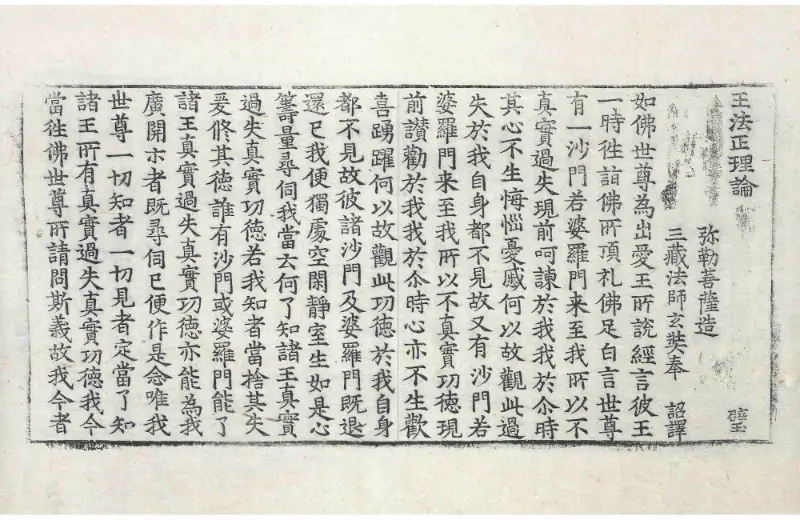 王法正理論
弥勒菩薩造
三藏法師玄奘奉 詔譯
如佛世尊為出愛王所說經言彼王
一時往詣佛所頂礼佛足白言世尊
有一沙門若婆羅門来至我所以不
真實過失現前呵諫於我我於尒時
其心不生悔惱憂慼何以故觀此過
失於我自身都不見故又有沙門若
婆羅門来至我所以不真實功德現
前讃勸於我我於尒時心亦不生歡
喜踴躍何以故觀此功德於我自身
都不見故彼諸沙門及婆羅門既退
還已我便獨處空閑靜室生如是心
籌量尋伺我當云何了知諸王真實
過失真實功德若我知者當捨其失
爰修其德誰有沙門或婆羅門能了
諸王真實過失真實功德亦能為我
廣開示者既尋伺已便作是念唯我
世尊一切知者一切見者定當了知
諸王所有真實過失真實功德我今
當往佛世尊所請問斯義故我今者